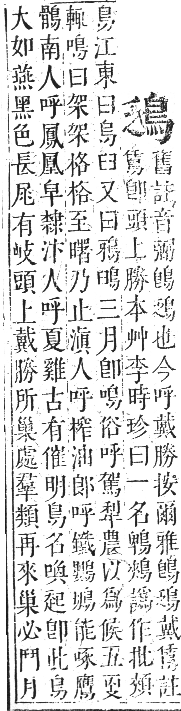 鴔
舊註音弼鵖鴔也今呼戴勝按爾雅鵖鴔戴鵀註
鵀卽頭上勝本艸李時珍曰一名鵧鷑譌作批頰
鳥江東曰烏臼又曰鴉䳕三月卽鳴俗呼駕犁農以爲候五更
輒鳴曰架架格格至曙乃止滇人呼榨油郎呼鐵鸚鵡能啄鷹
鶻南人呼鳳凰皁隸汴人呼夏雞古有催明鳥名喚起卽此鳥
大如燕黑色長尾有岐頭上戴勝所巢處羣類再來巢必鬥月